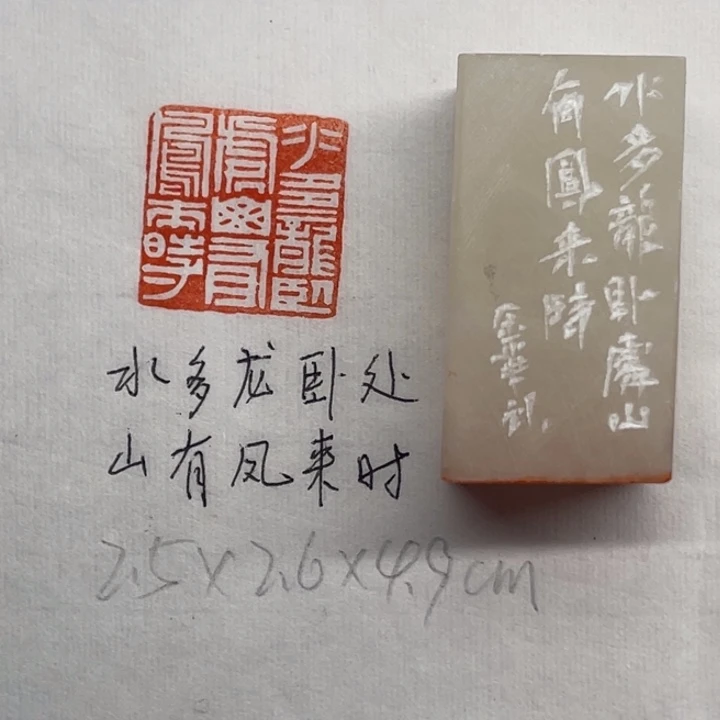 水多龍臥
處山有
鳳來時
水多龍卧處山
有鳳来時
水多龙卧处
山有凤来时
2.5×2.6×4.9cm